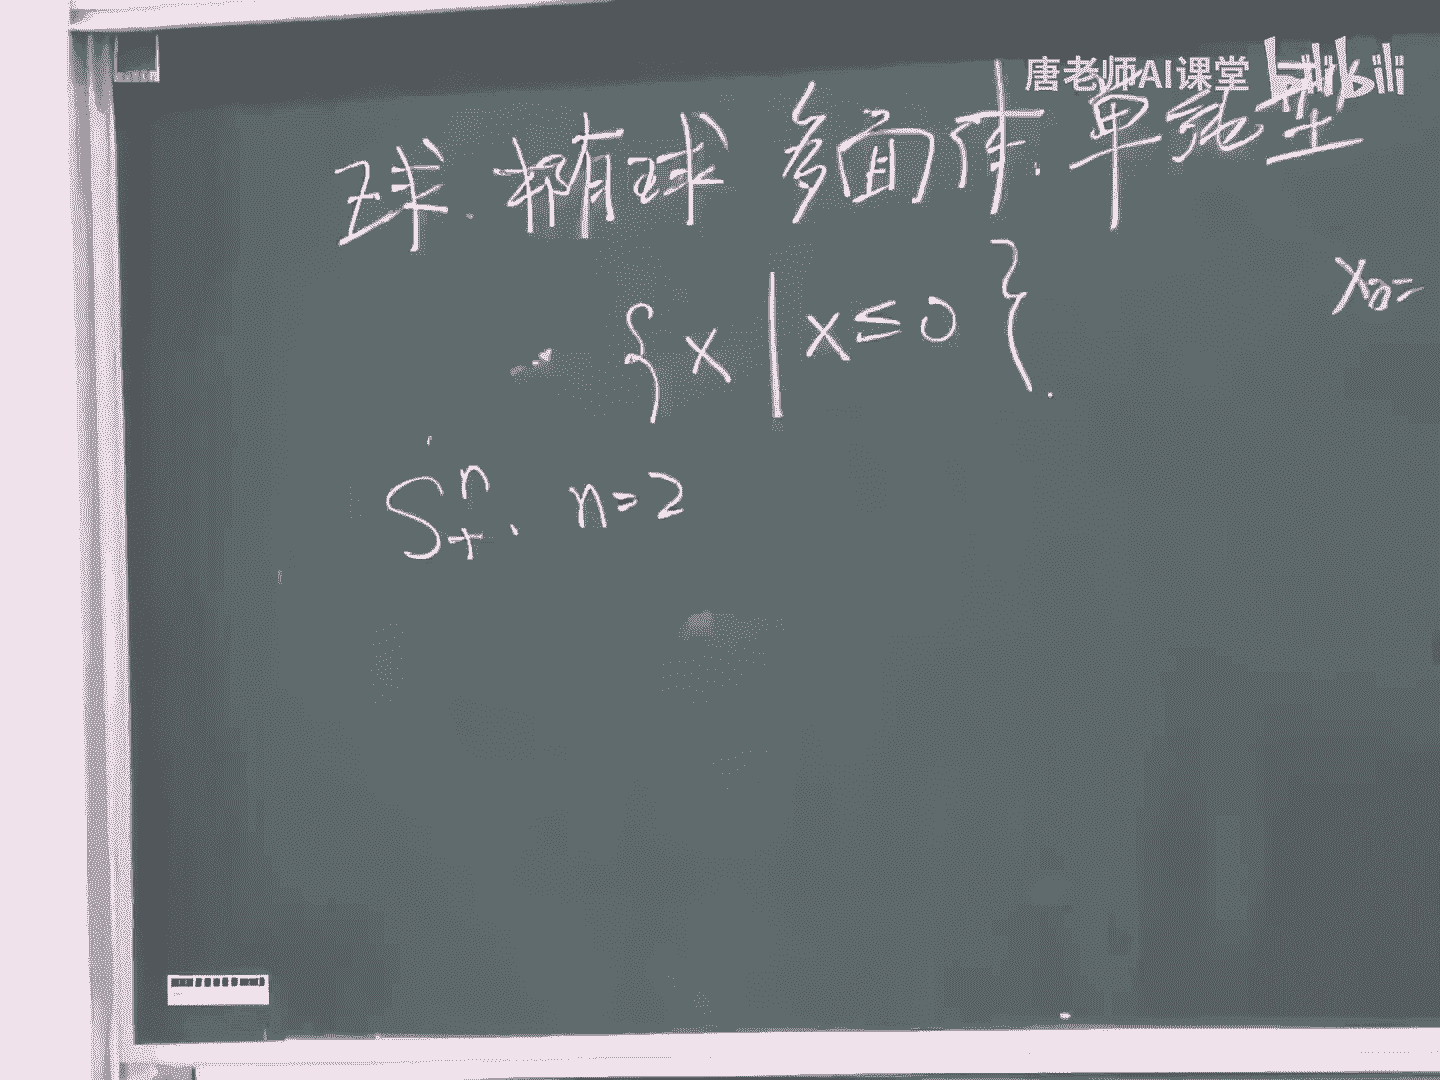 唐老师AI课堂 bilibili
球.椭球 多面体.单纯型
{x|x≤0}.
S₊ⁿ. n=2